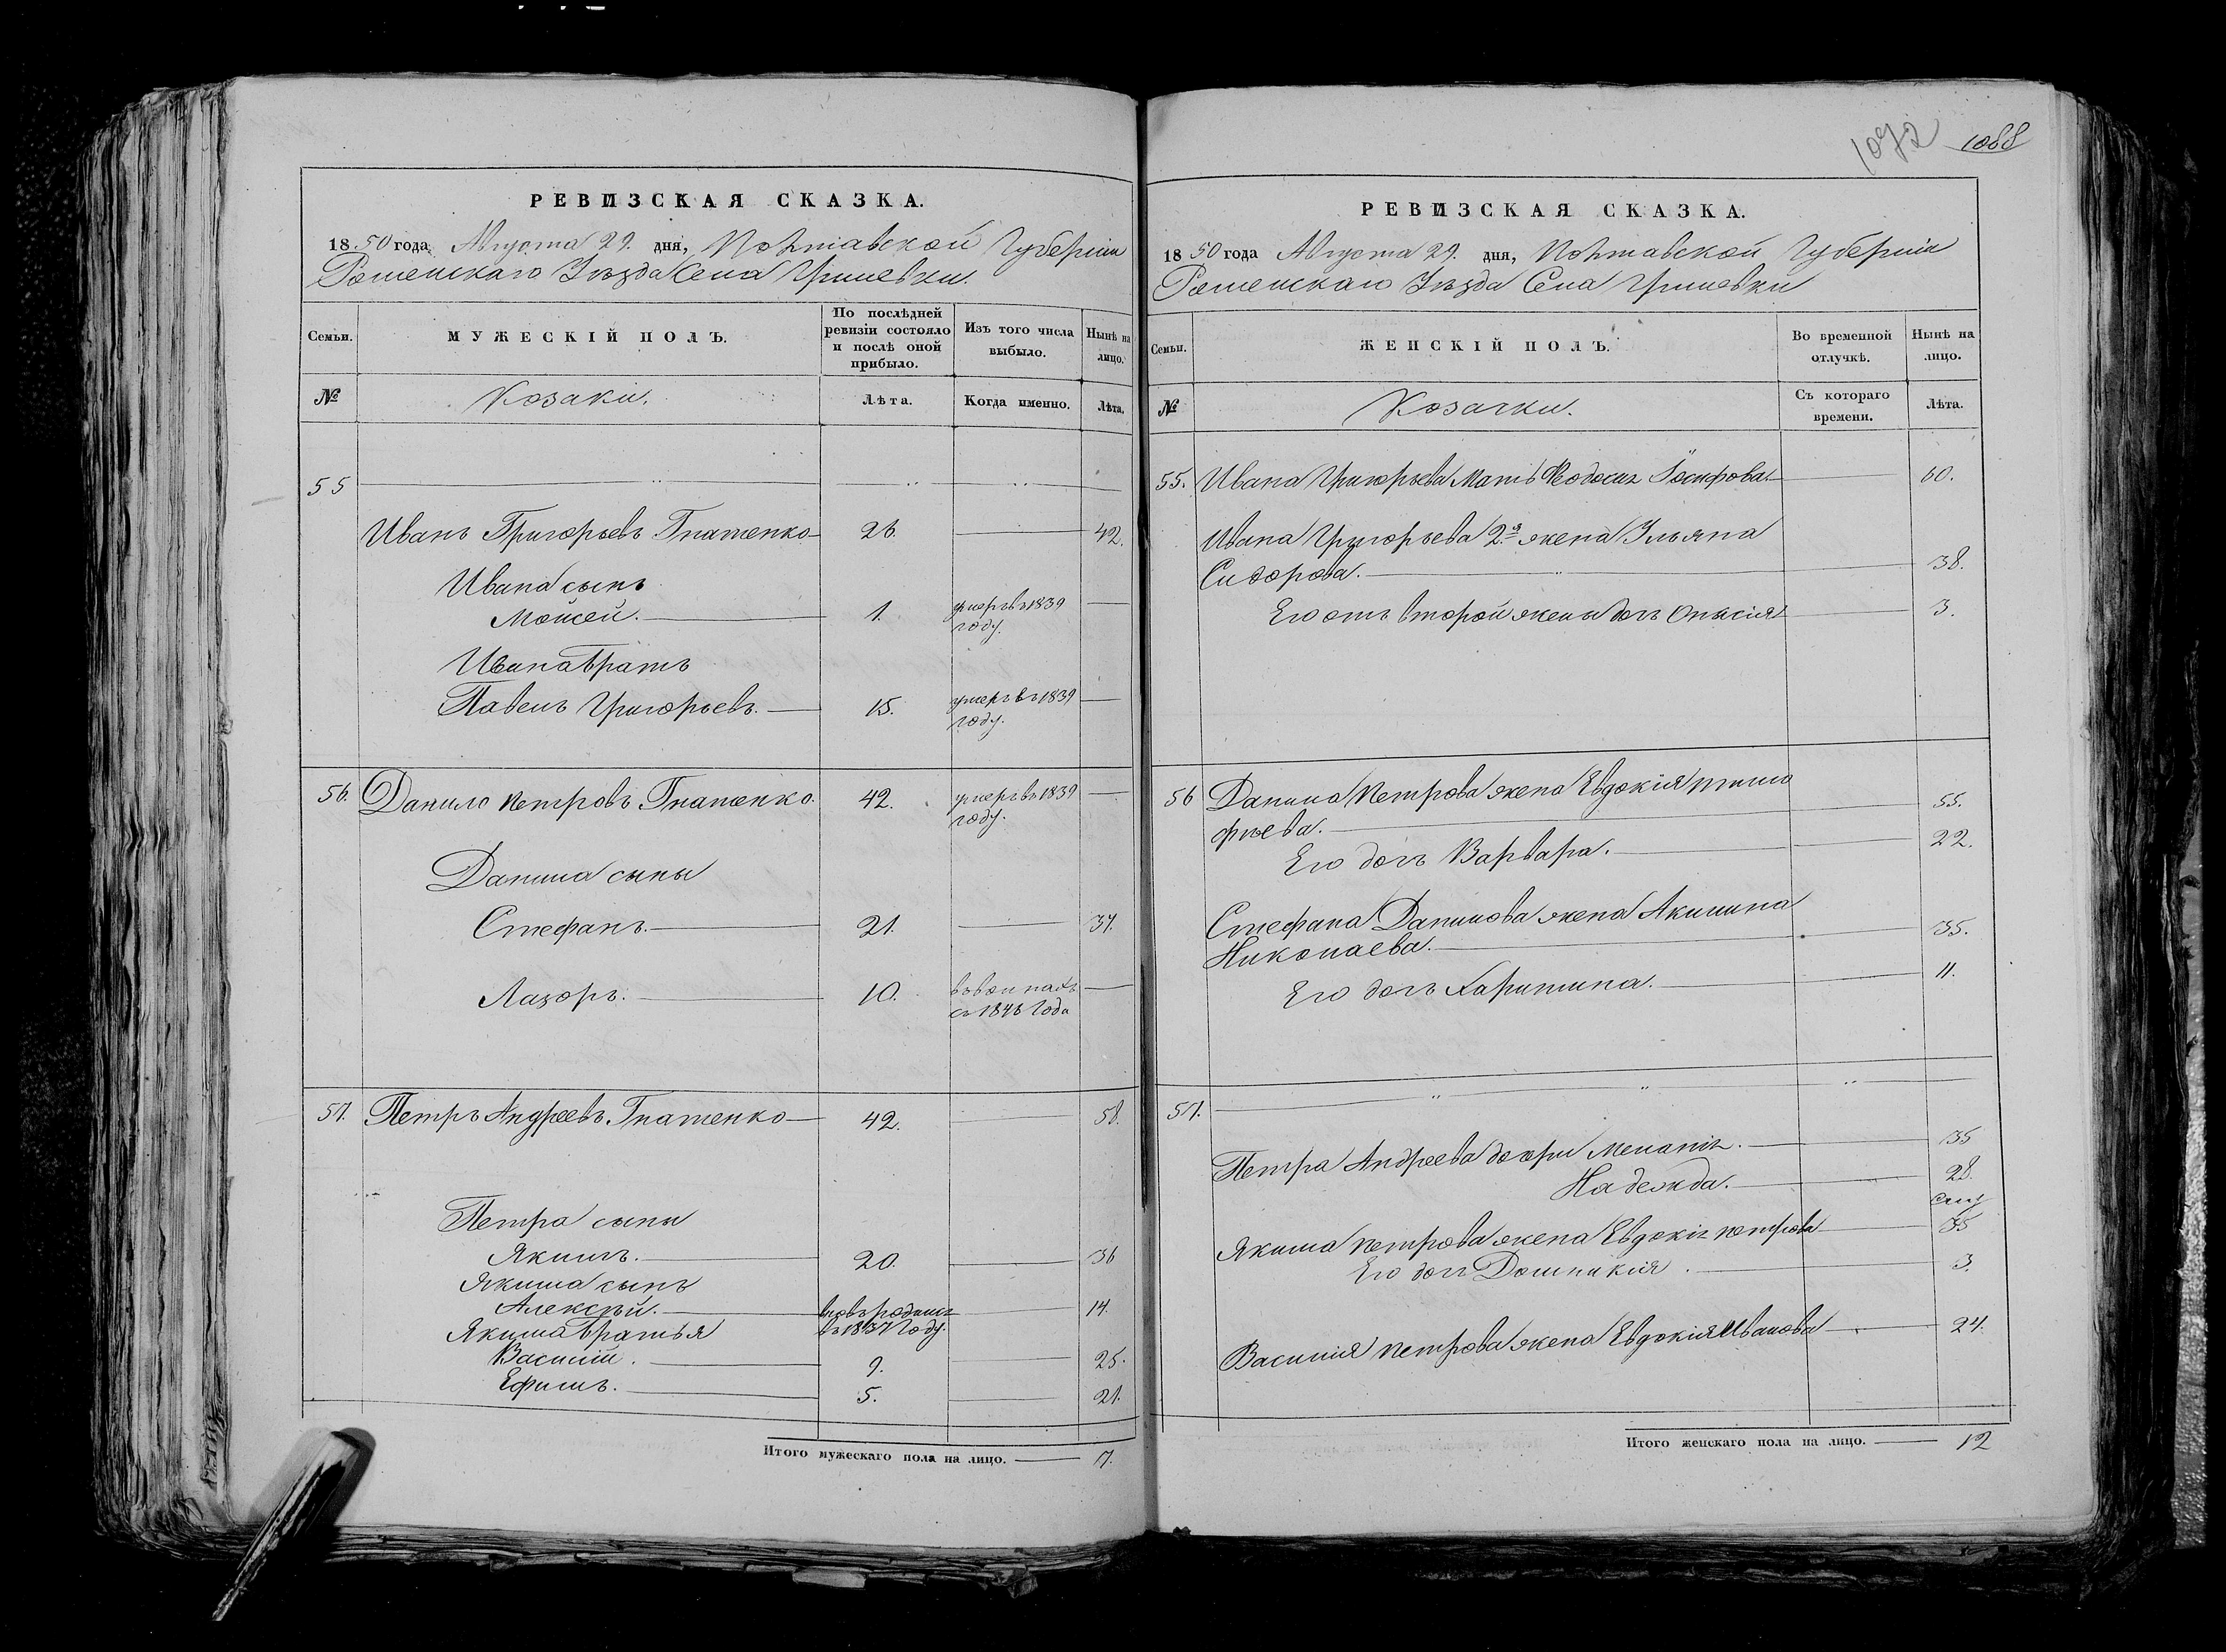 1072 1088
РЕВИЗСКАЯ СКАЗКА.
1850 года Августа 29. дня, Полтавской Губерніи
Роменскаго Уѣзда Села Гришевки.
Семьи.
МУЖЕСКІЙ ПОЛЪ.
По послѣдней
ревизіи состояло
и послѣ оной
прибыло.
Изъ того числа
выбыло.
Нынѣ на
лицо.
№
Козаки.
Лѣта.
Когда именно.
Лѣта.
55
Иванъ Григорьевъ Гнатенко 26. 42.
Ивана сынъ
Мойсей. 1. умеръ въ 1839
году.
Ивана братъ
Павелъ Григорьевъ. 15. умеръ въ 1839
году.
56. Данило Петровъ Гнатенко. 42. умеръ въ 1839
году.
Данила сыны
Стефанъ. 21. 37.
Лазоръ. 10.
57. Петръ Андреевъ Гнатенко 42. 58.
Петра сыны
Якимъ. 20. 36
Якима сынъ
Алексѣй. вновьродился 14.
въ 1837 году.
Якима братья
Василій. 9. 25.
Ефимъ. 5. 21.
Итого мужескаго пола на лицо. 7.
РЕВИЗСКАЯ СКАЗКА.
1850 года Августа 29. дня, Полтавской Губерніи
Роменскаго Уѣзда Села Гришевки
Семьи.
ЖЕНСКІЙ ПОЛЪ.
Во временной
отлучкѣ.
Нынѣ на
лицо.
№
Козачки.
Съ котораго
времени.
Лѣта.
55. Ивана Григорьева Мать Феодосия Іосифова 60.
Ивана Григорьева 2я жена Ульяна
Сидорова. 38.
Его отъ второй жены дочь 3.
56 Данила Петрова жена Евдокія Тимо
фѣева. 55.
Его дочь Варвара. 22.
Стефана Данилова жена Акилина
Николаева. 35.
Его дочь Харитина. 11.
57.
Петра Андреева дочери Меланія. 35
Надежда. 28.
Якима Петрова жена Евдокія Петрова 35
Его дочь Домникія. 3.
Василія Петрова жена Евдокія Иванова 24.
Итого женскаго пола на лицо. 12